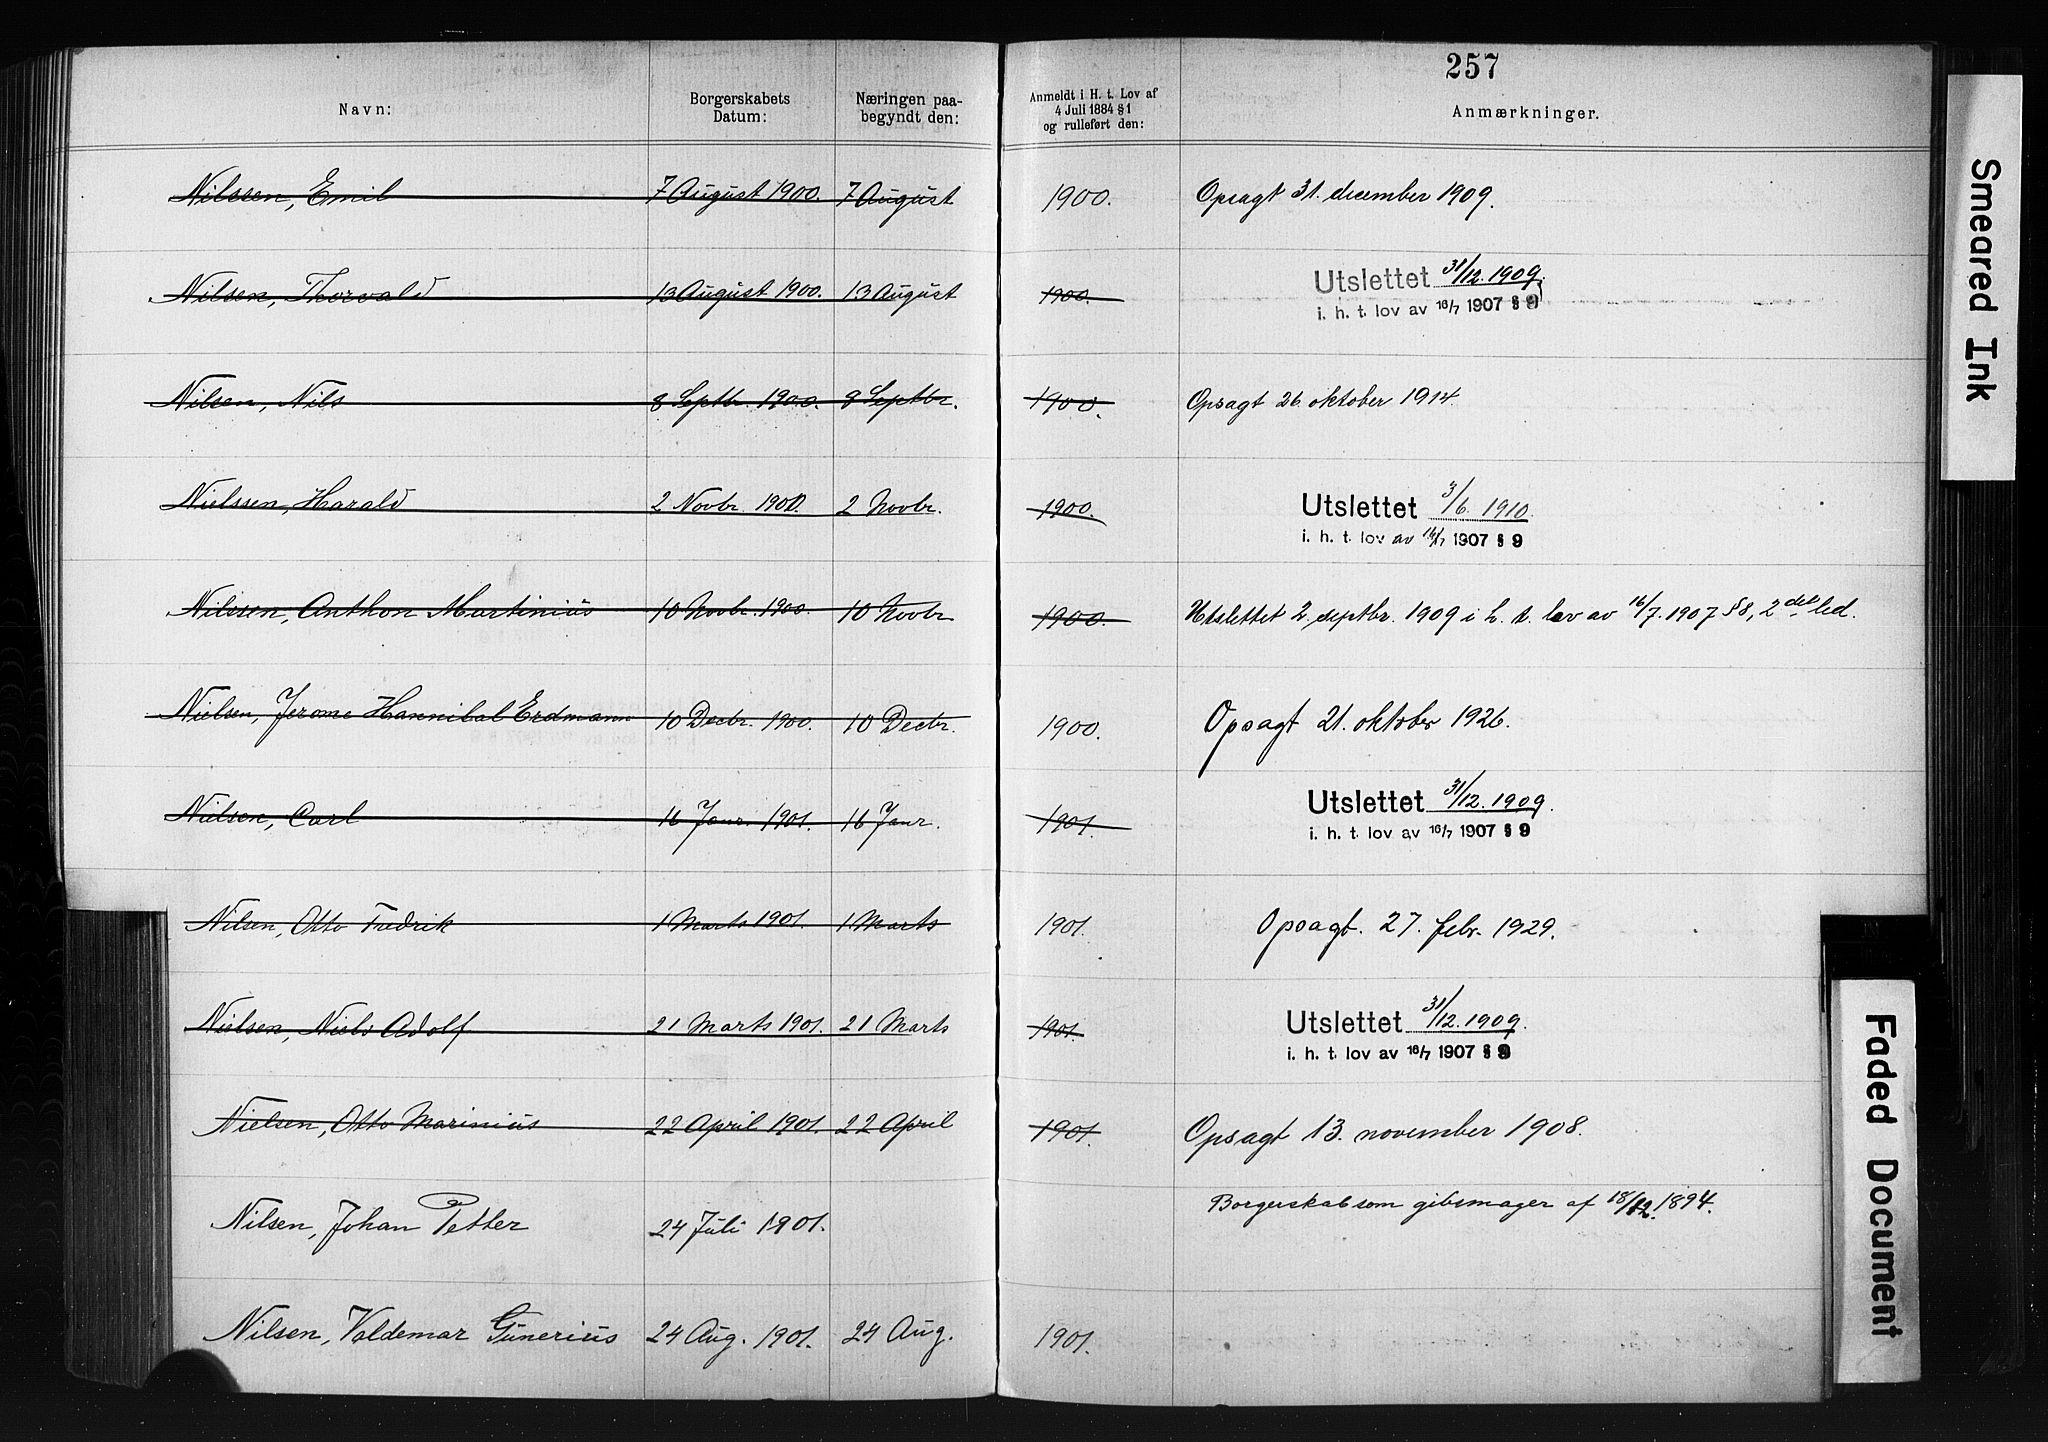 257
Navn: Borgerskabets Datum: Næringen paa- begyndt den: Anmeldt i H. t. Lov af 4 Juli 1884 § 1 og rulleført den: Anmærkninger.
Nilssen, Emil 7 August 1900. 7 August 1900. Opsagt 31. december 1909.
Nilsen, Thorvald 13 August 1900. 13 August 1900. Utslettet 31/12. 1909.
i. h. t. lov av 16/7 1907 § 9
Nilsen, Nils 8 Septbr. 1900. 8 Septbr. 1900. Opsagt 26 oktober 1914.
Nielssen, Harald 2 Novbr. 1900. 2 Novbr. 1900. Utslettet 3/6. 1910.
i. h. t. lov av 16/7 1907 § 9
Nilssen, Anthon Martinius 10 Novbr. 1900. 10 Novbr 1900. Utslettet 2. septbr. 1909 i h. t. lov av 16/7. 1907 § 8, 2det led.
Nielsen, Jerome Hannibal Erdmann 10 Decbr. 1900. 10 Decbr. 1900. Opsagt 21. oktober 1926.
Nielsen, Carl 16 Janr. 1901. 16 Janr. 1901. Utslettet 31/12. 1909.
i. h. t. lov av 16/7 1907 § 9
Nilsen, Otto Fredrik 1 Marts 1901. 1 Marts 1901. Opsagt. 27. febr. 1929.
Nielsen, Niels Adolf 21 Marts 1901. 21 Marts 1901. Utslettet 31/12. 1909.
i. h. t. lov av 16/7 1907 § 9
Nielsen, Otto Marinius 22 April 1901. 22 April 1901. Opsagt 13. november 1908.
Nilsen, Johan Petter 24 Juli 1901. Borgerskab som gibsmager af 18/12. 1894.
Nilsen, Valdemar Gunerius 24 Aug. 1901. 24 Aug. 1901.
Smeared Ink
Faded Document